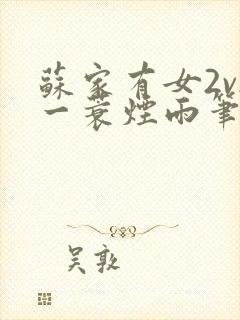 蘇家有女2v
一蓑煙雨筆
吴敦